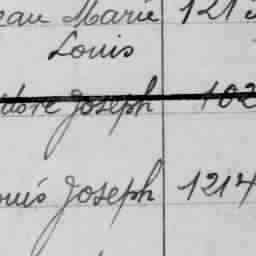 ean Marie 121
Louis
dore Joseph 102
ouis Joseph 1214